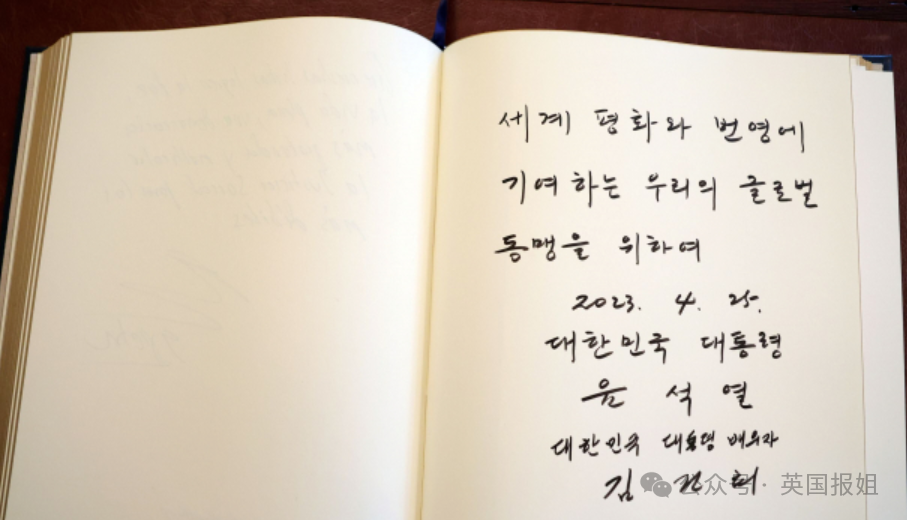 세계 평화와 번영에
기여하는 우리의 글로벌
동맹을 위하여
2023. 4. 25.
대한민국 대통령
윤 석 열
대한민국 대통령 배우자
김 건 희
公众号· 英国报姐